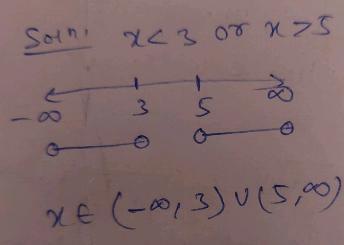 Soln: x < 3 or x > 5
-∞ 3 5 ∞
x ∈ (-∞, 3) ∪ (5, ∞)